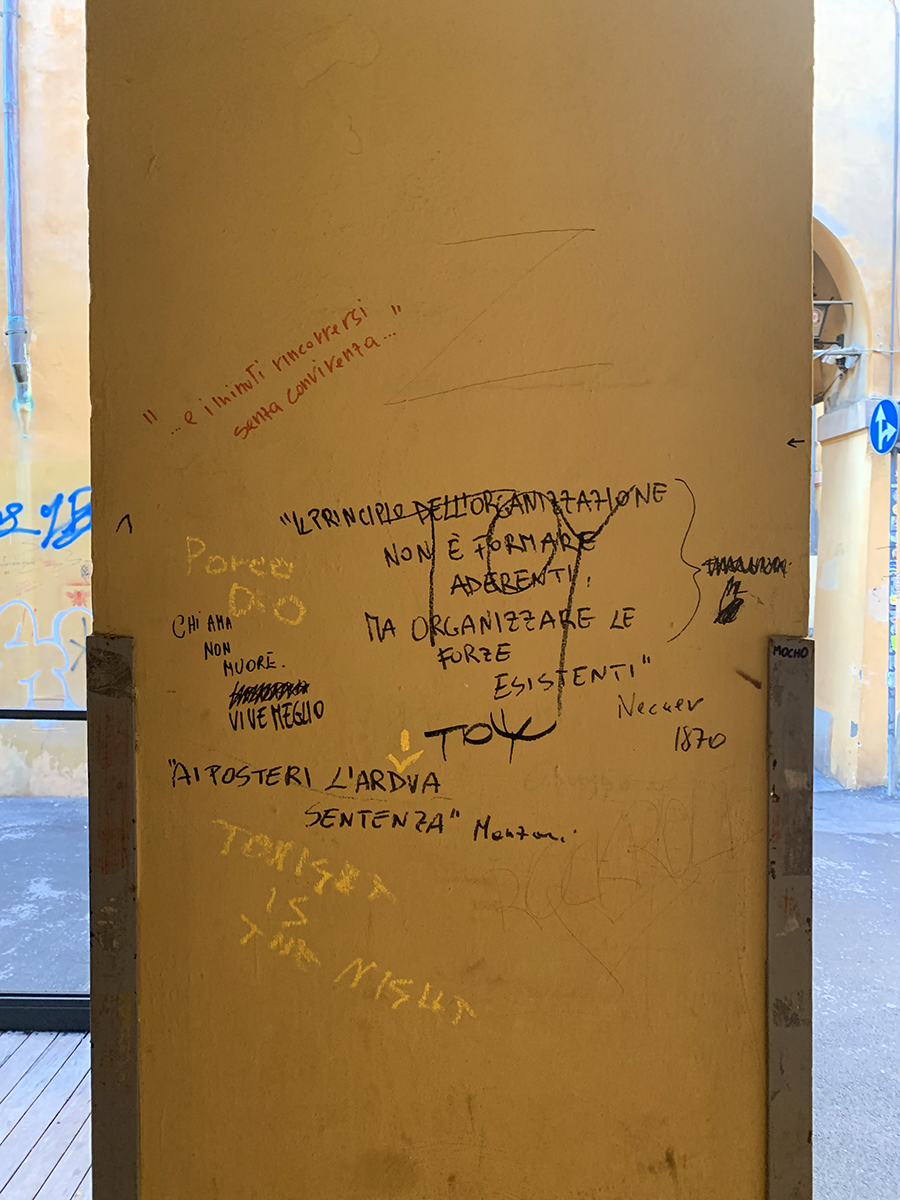 "...e i minuti rincorrersi
senza convivenza..."
"IL PRINCIPIO DELL'ORGANIZZAZIONE
NON È FORMARE
ADERENTI,
MA ORGANIZZARE LE
FORZE
ESISTENTI"
1870
PORCO
DIO
CHI AMA
NON
MUORE.
VIVE MEGLIO
MOCHO
"AI POSTERI L'ARDUA
SENTENZA" Manzoni
TONIGHT
IS
THE NIGHT